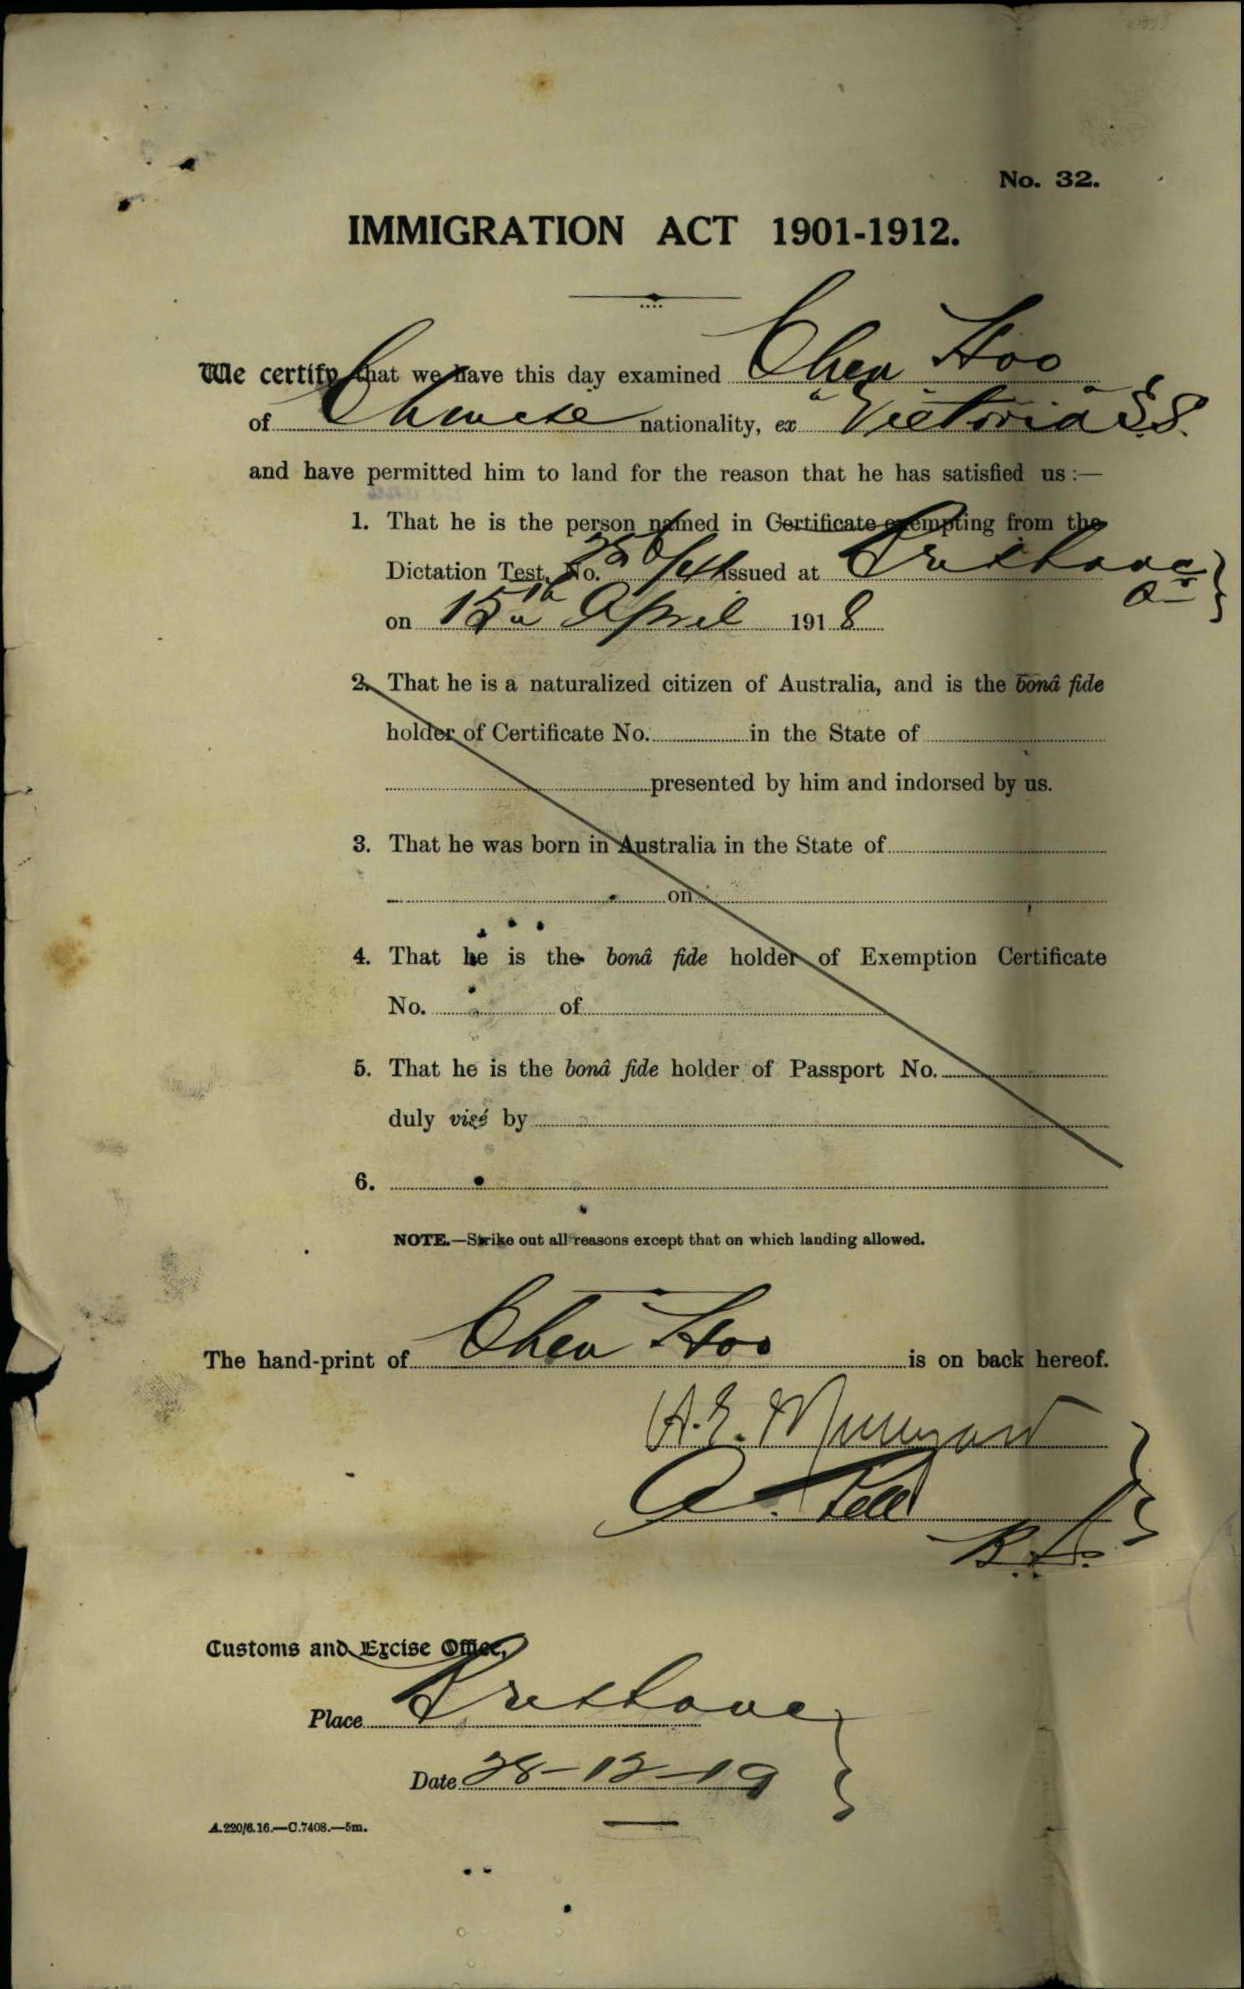 No. 32.
IMMIGRATION ACT 1901-1912.
We certify that we have this day examined Chen Hoo
of Chinese nationality, ex "Victoria" S.S.
and have permitted him to land for the reason that he has satisfied us :—
1. That he is the person named in Certificate exempting from the
Dictation Test, No. issued at Brisbane
on 15th April 1918
2. That he is a naturalized citizen of Australia, and is the bonâ fide
holder of Certificate No. in the State of
presented by him and indorsed by us.
3. That he was born in Australia in the State of
on
4. That he is the bonâ fide holder of Exemption Certificate
No. of
5. That he is the bonâ fide holder of Passport No.
duly visé by
6.
NOTE.—Strike out all reasons except that on which landing allowed.
The hand-print of Chen Hoo is on back hereof.
H.E.
A.
Customs and Excise Office,
Place Brisbane
Date 28-12-19
A.220/6.16.—C.7408.—5m.